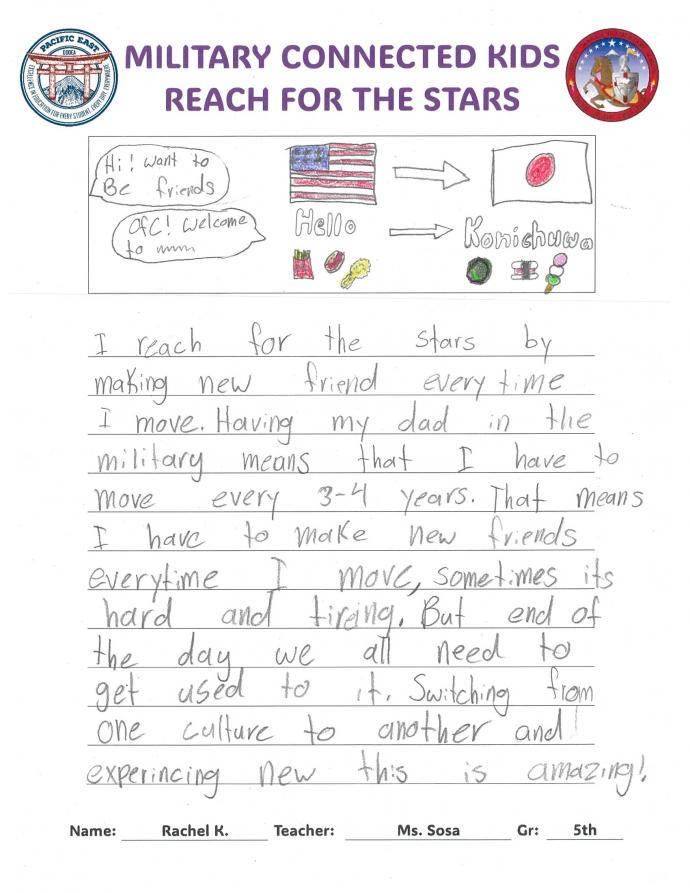 PACIFIC EAST
DODEA
EXCELLENCE IN EDUCATION FOR EVERY STUDENT, EVERY DAY, EVERYWHERE
MILITARY CONNECTED KIDS
REACH FOR THE STARS
Hi! want to
Be friends
OfC! Welcome
to
Hello
Konichuwa
I reach for the stars by
making new friend every time
I move. Having my dad in the
military means that I have to
move every 3-4 years. That means
I have to make new friends
everytime I move, sometimes its
hard and tireing. But end of
the day we all need to
get used to it. Switching from
one culture to another and
experincing new this is amazing!
Name: Rachel K. Teacher: Ms. Sosa Gr: 5th